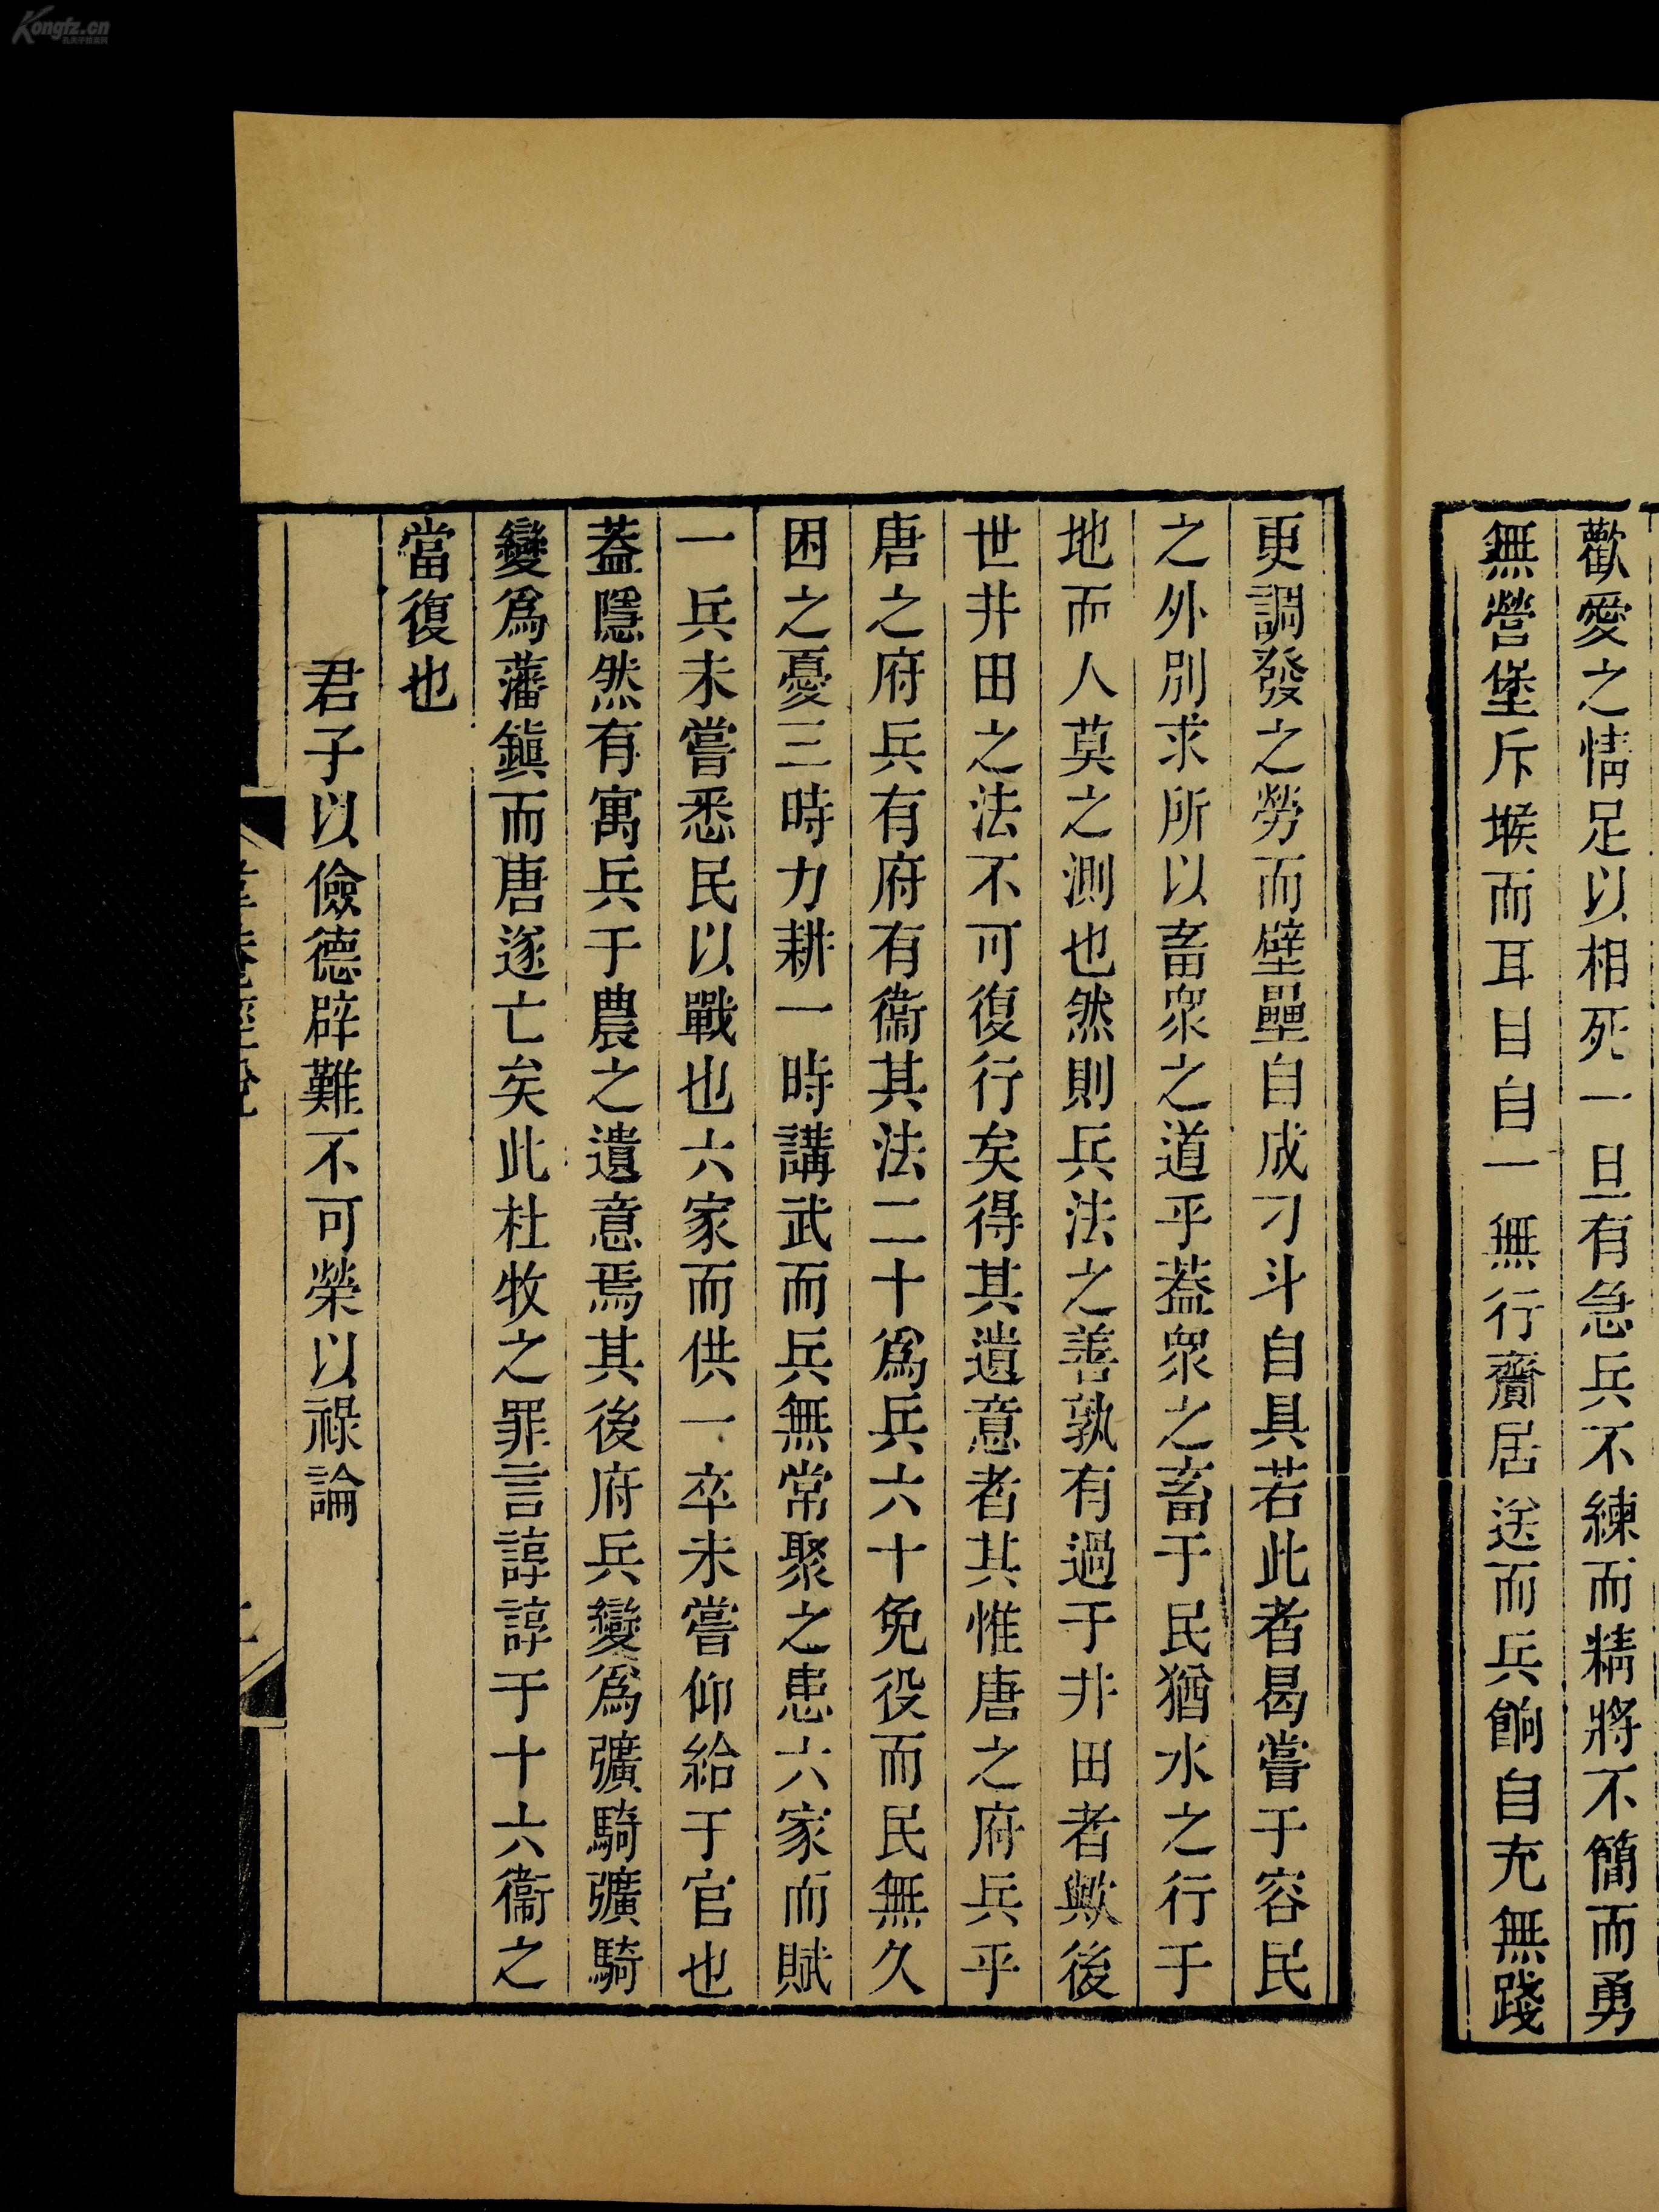 歡愛之情足以相死一旦有急兵不練而精將不簡而勇
無營堡斥堠而耳目自一無行齎居送而兵餉自充無踐
更調發之勞而壁壘自成刁斗自具若此者曷嘗于容民
之外別求所以畜衆之道乎葢衆之畜于民猶水之行于
地而人莫之測也然則兵法之善孰有過于井田者歟後
世井田之法不可復行矣得其遺意者其惟唐之府兵乎
唐之府兵有府有衞其法二十爲兵六十免役而民無久
困之憂三時力耕一時講武而兵無常聚之患六家而賦
一兵未嘗悉民以戰也六家而供一卒未嘗仰給于官也
葢隱然有寓兵于農之遺意焉其後府兵變爲彍騎彍騎
變爲藩鎭而唐遂亡矣此杜牧之罪言諄諄于十六衞之
當復也
君子以儉德辟難不可榮以祿論
Kongfz.cn